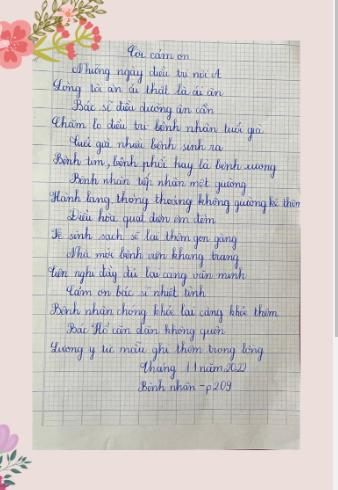 Lời cảm ơn
Những ngày điều trị nội A
Lòng tôi ân ái thật là ái ân
Bác sĩ điều dưỡng ân cần
Chăm lo điều trị bệnh nhân tuổi già
Tuổi già nhiều bệnh sinh ra
Bệnh tim, bệnh phổi hay là bệnh xương
Bệnh nhân tiếp nhận một gương
Hành lang thông thoáng không giường kê thêm
Điều hòa quạt điện êm đềm
Vệ sinh sạch sẽ lại thêm gọn gàng
Nhà mới bệnh viện khang trang
Tiện nghi đầy đủ lại càng văn minh
Cảm ơn bác sĩ nhiệt tình
Bệnh nhân chóng khỏe lại càng khỏe thêm
Bác Hồ căn dặn không quên
Lương y từ mẫu ghi thêm trong lòng
Tháng 11 năm 2022
Bệnh nhân - p209